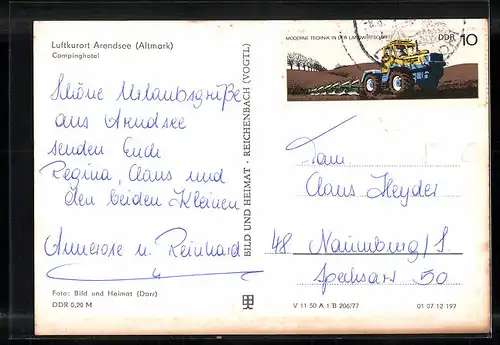 Luftkurort Arendsee (Altmark)
Campinghotel
Schöne Urlaubsgrüße
aus Arendsee
senden Euch
Regina, Claus und
den beiden Kleinen
Annerose u. Reinhard
Foto: Bild und Heimat (Darr)
DDR 0,20 M
BILD UND HEIMAT · REICHENBACH (VOGTL)
MODERNE TECHNIK IN DER LANDWIRTSCHAFT
DDR 10
Fam
Claus Heyder
48 Naumburg/S.
Spechsart 50
V 11 50 A 1/B 206/77
01 07 12 197